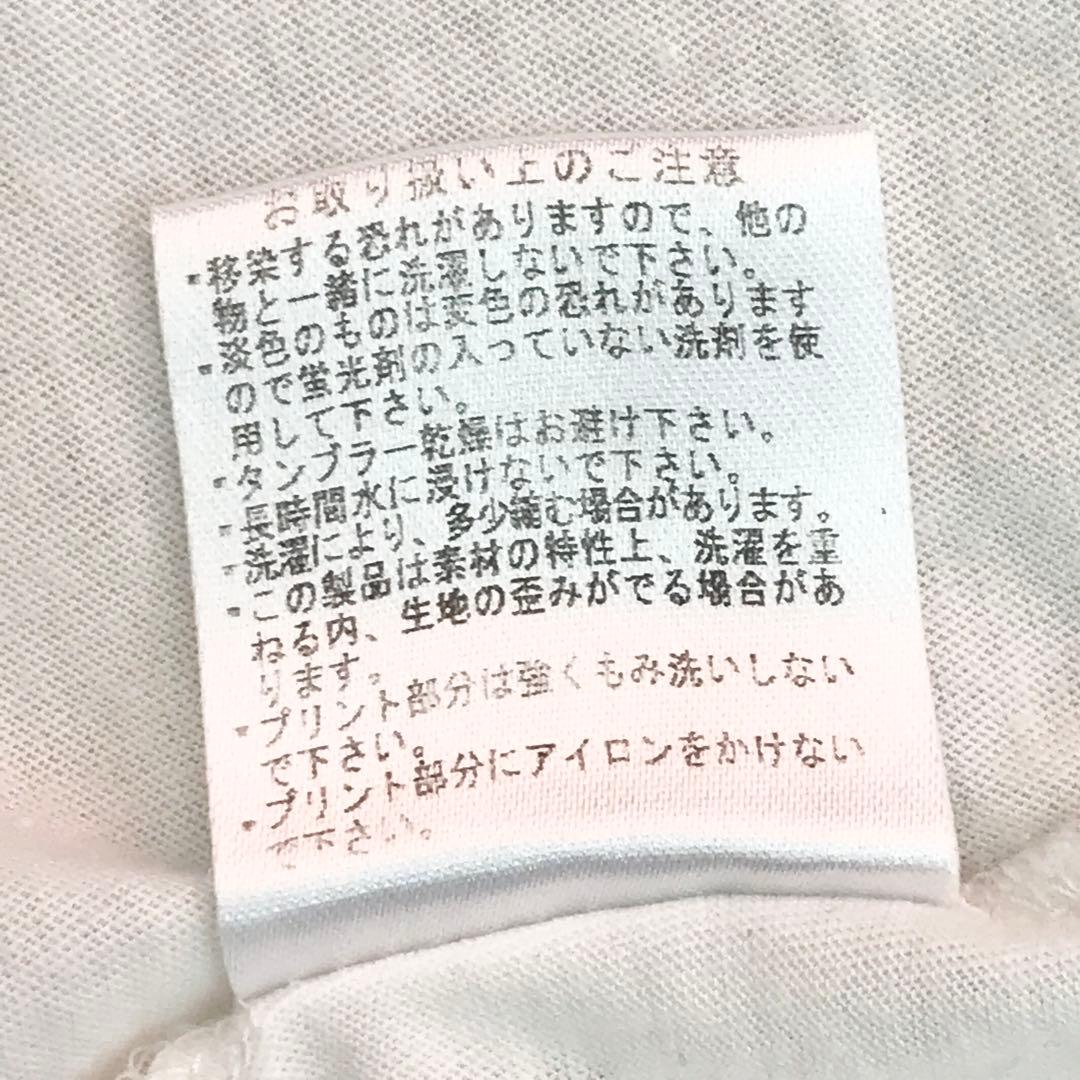 お取り扱い上のご注意
▪移染する恐れがありますので、他の
物と一緒に洗濯しないで下さい。
▪淡色のものは変色の恐れがあります
ので蛍光剤の入っていない洗剤を使
用して下さい。
▪タンブラー乾燥はお避け下さい。
▪長時間水に浸けないで下さい。
▪洗濯により、多少縮む場合があります。
▪この製品は素材の特性上、洗濯を重
ねる内、生地の歪みがでる場合があ
ります。
▪プリント部分は強くもみ洗いしない
で下さい。
▪プリント部分にアイロンをかけない
で下さい。